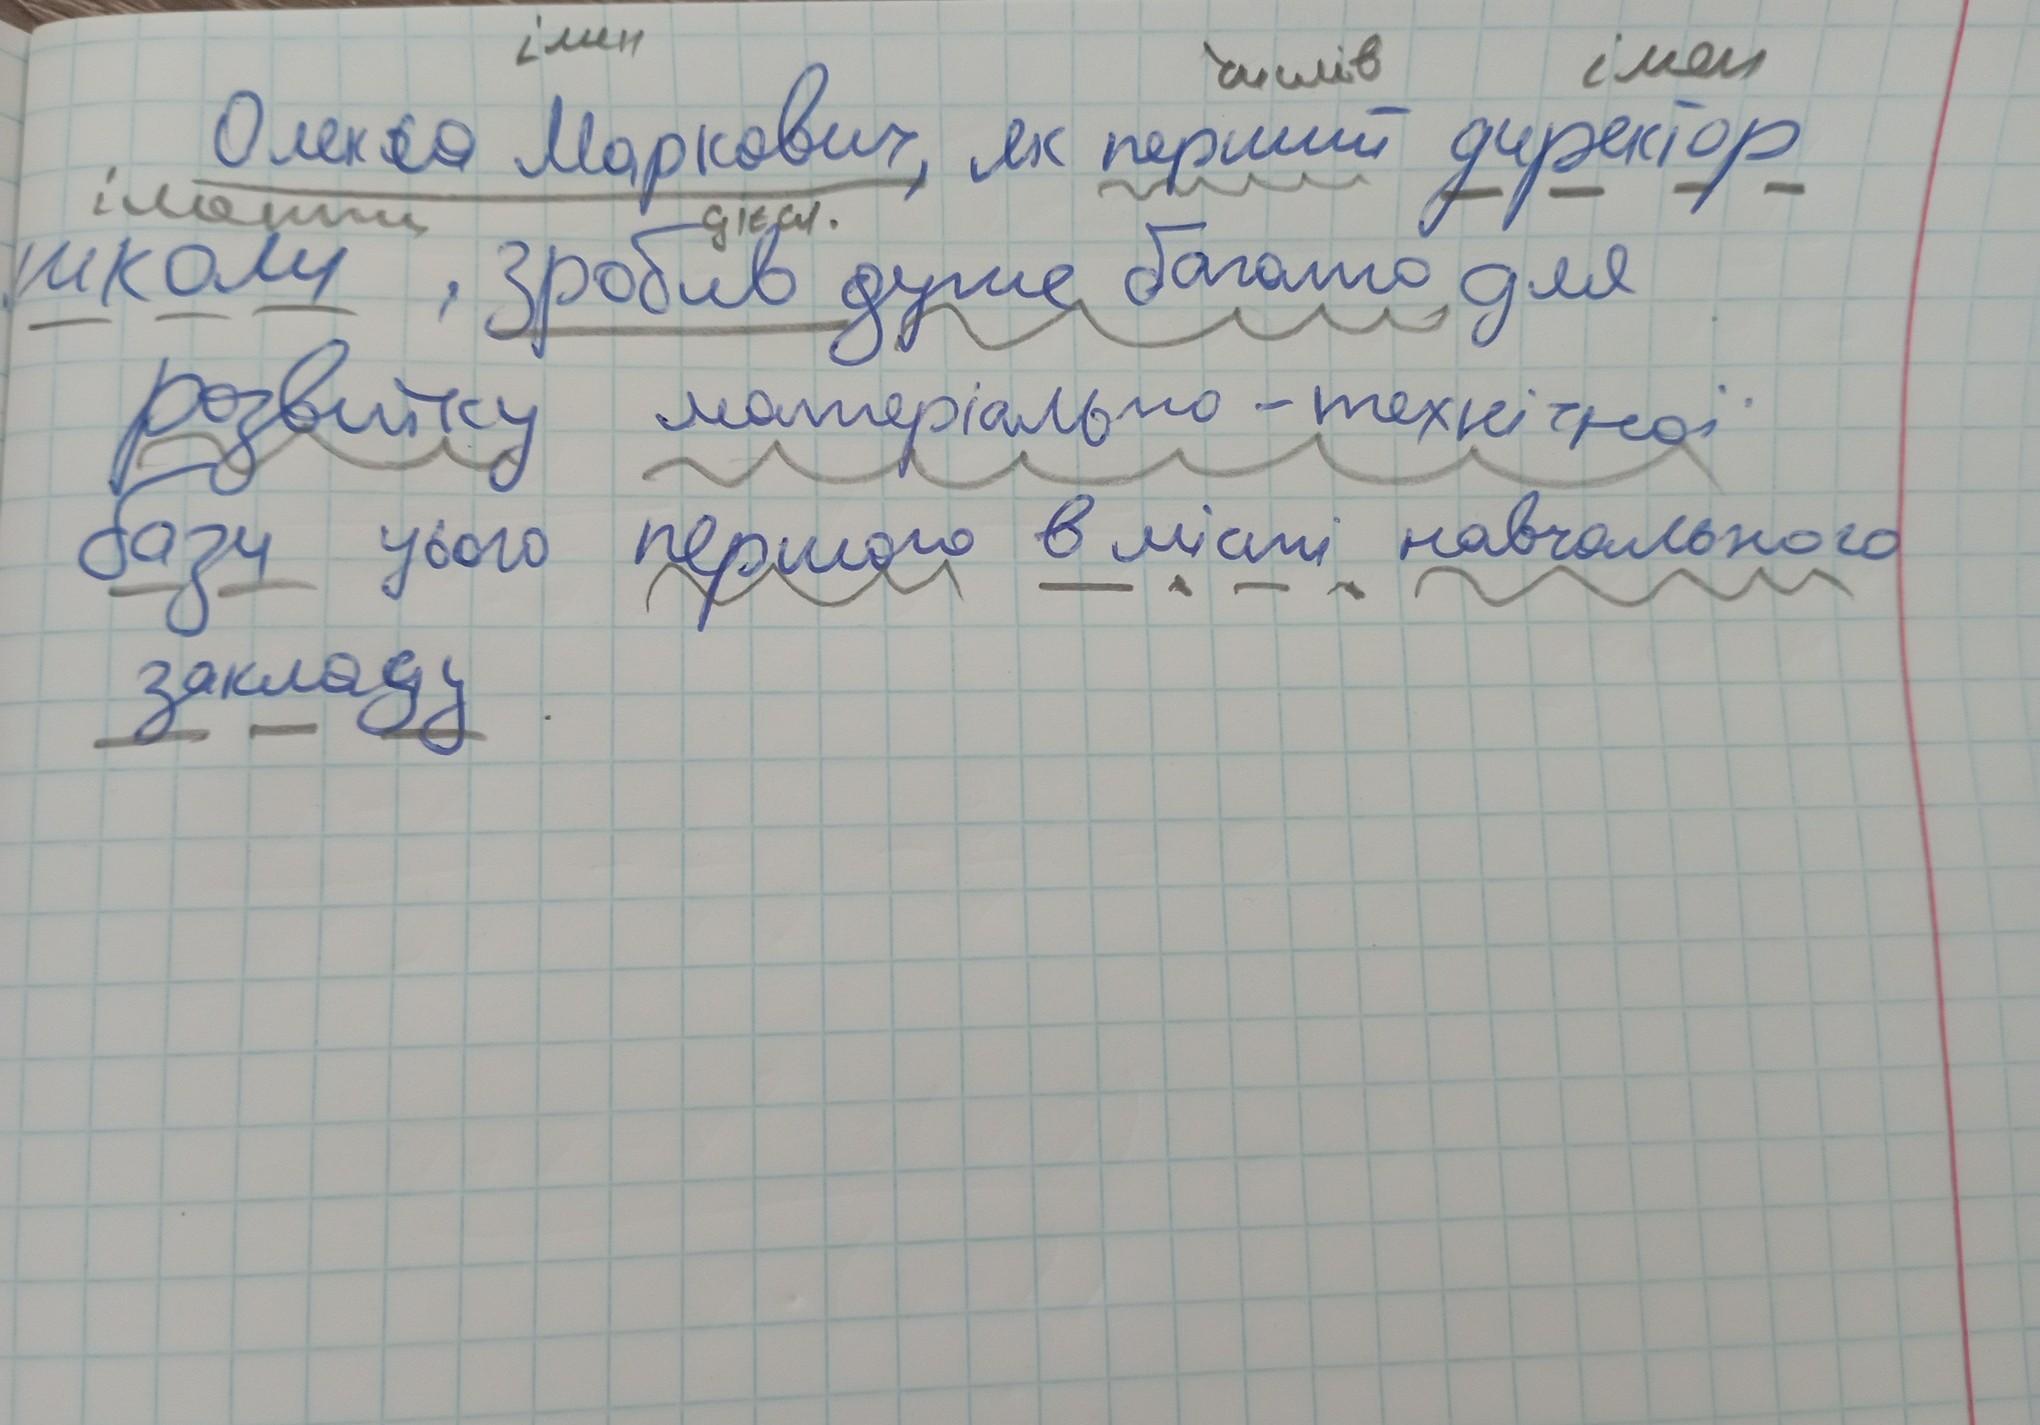 імен числів імен
Олекса Маркович, як перший директор
дієсл.
школи, зробив дуже багато для
розвитку матеріально-технічної
бази цього першого в місті навчального
закладу.